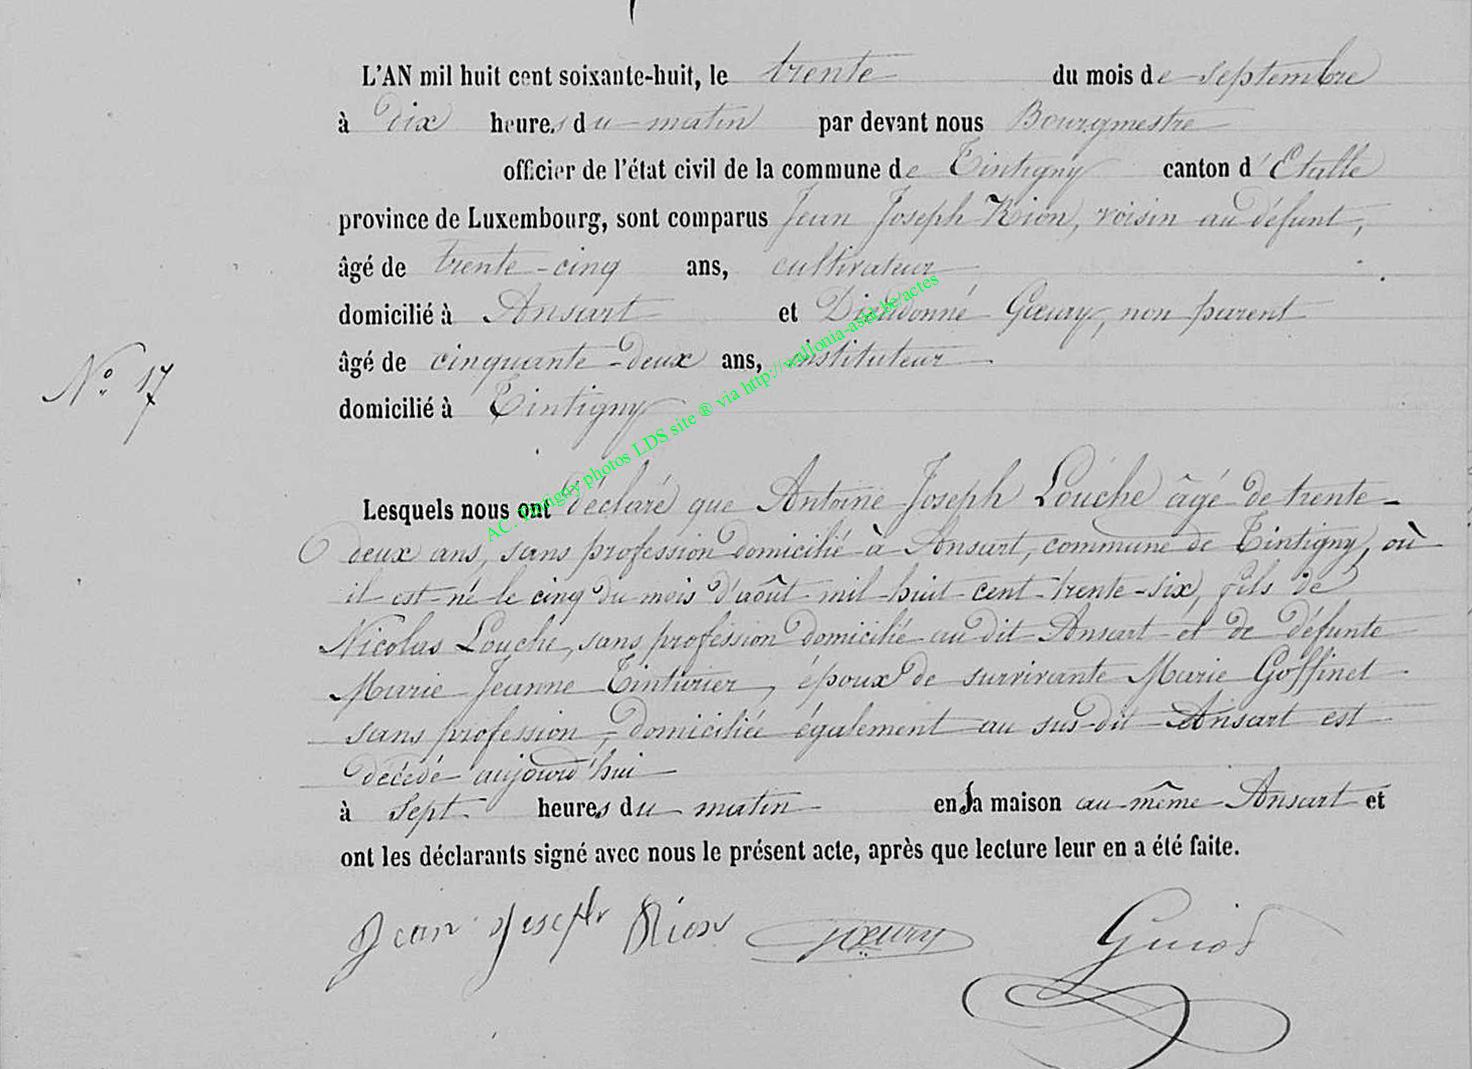 L'AN mil huit cent soixante-huit, le trente du mois de septembre
à dix heures du matin par devant nous Bourgmestre
officier de l'état civil de la commune de Tintigny canton d'Etalle
province de Luxembourg, sont comparus Jean Joseph Rion, voisin au défunt,
âgé de trente-cinq ans, cultivateur
domicilié à Ansart et Dieudonné Gœury, non parent
âgé de cinquante-deux ans, instituteur
N° 17
domicilié à Tintigny
AC. Tintigny photos LDS site ® via http://wallonia-asbl.be/actes
Lesquels nous ont déclaré que Antoine Joseph Louche âgé de trente-
deux ans, sans profession domicilié à Ansart, commune de Tintigny, où
il est né le cinq du mois d'août mil huit cent trente-six, fils de
Nicolas Louche, sans profession domicilié au dit Ansart et de défunte
Marie Jeanne Tinturier, époux de survivante Marie Goffinet
sans profession, domiciliée également au sus-dit Ansart est
décédé aujourd'hui
à sept heures du matin en sa maison au même Ansart et
ont les déclarants signé avec nous le présent acte, après que lecture leur en a été faite.
Jean Joseph Rion Gœury Guiot